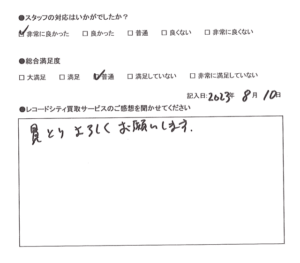 ●スタッフの対応はいかがでしたか?
☑非常に良かった □良かった □普通 □良くない □非常に良くない
●総合満足度
□大満足 □満足 ☑普通 □満足していない □非常に満足していない
記入日:2023年 8月 10日
●レコードシティ買取サービスのご感想を聞かせてください
買とりよろしくお願いします.